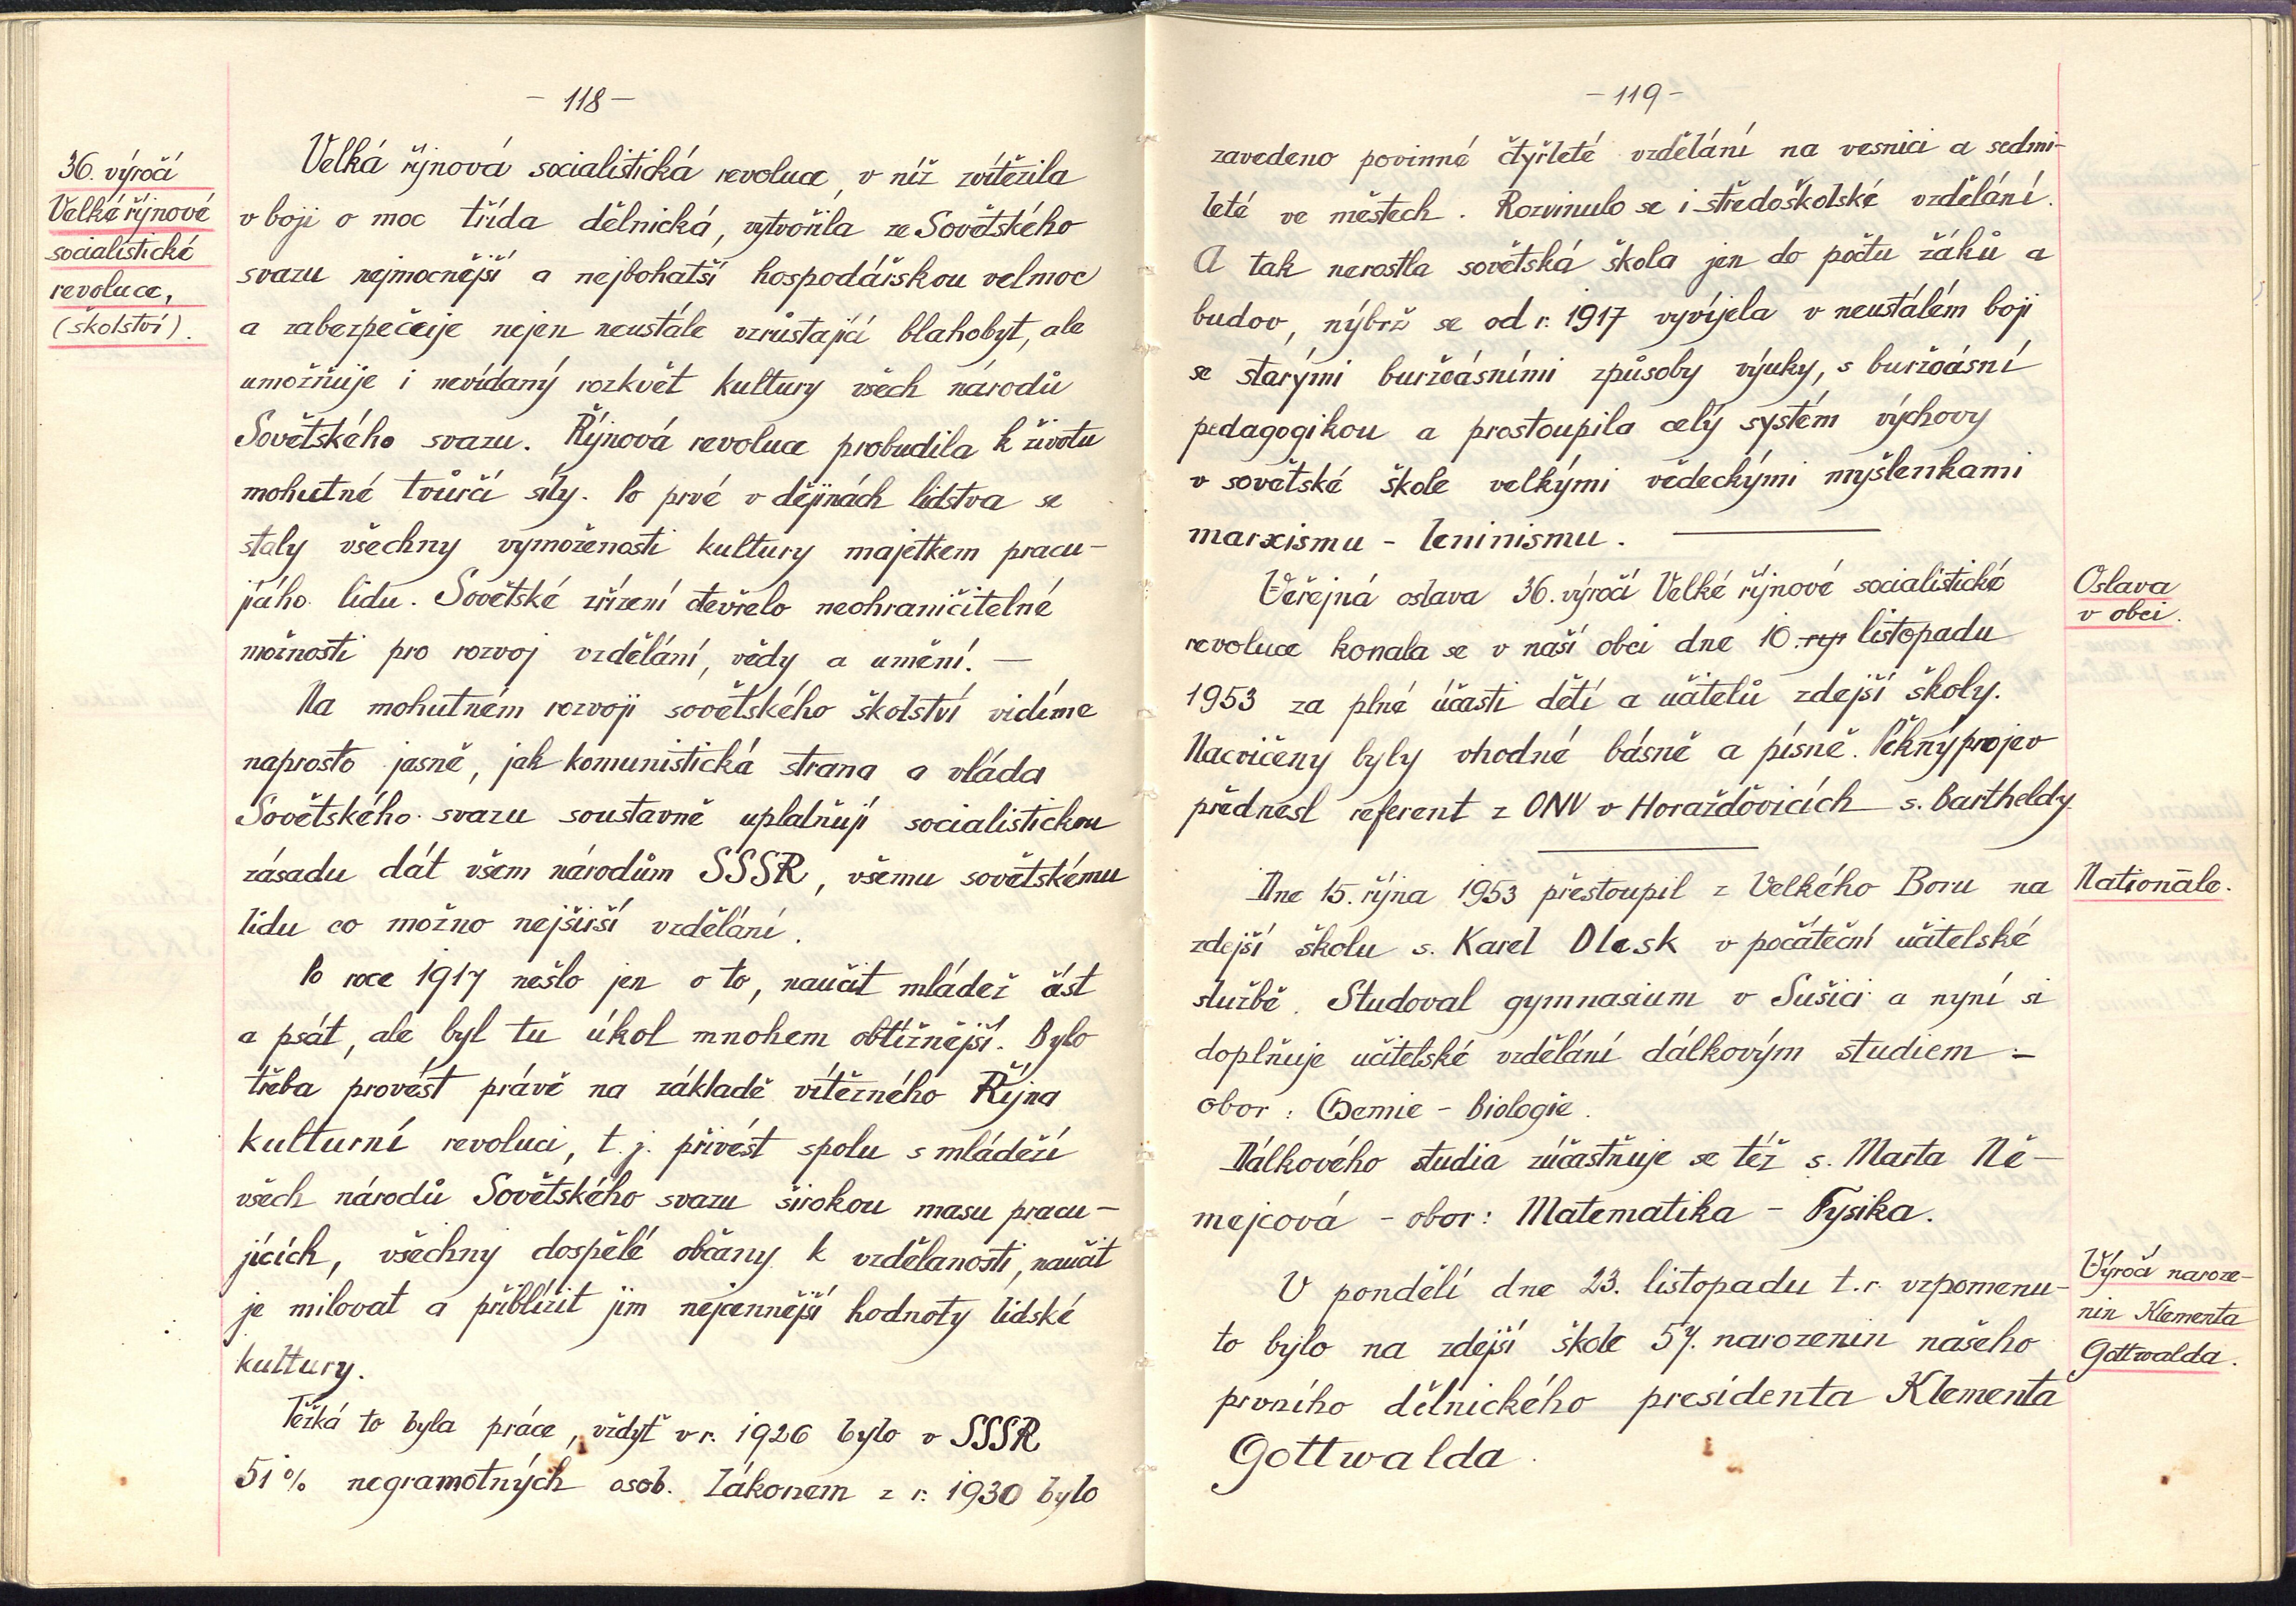 - 118 -
36. výročí
Velké říjnové
socialistické
revoluce,
(školství).
Velká říjnová socialistická revoluce, v níž zvítězila
v boji o moc třída dělnická, vytvořila ze Sovětského
svazu nejmocnější a nejbohatší hospodářskou velmoc
a zabezpečuje nejen neustále vzrůstající blahobyt, ale
umožňuje i nevídaný rozkvět kultury všech národů
Sovětského svazu. Říjnová revoluce probudila k životu
mohutné tvůrčí síly. Po prvé v dějinách lidstva se
staly všechny vymoženosti kultury majetkem pracu-
jícího lidu. Sovětské zřízení otevřelo neohraničitelné
možnosti pro rozvoj vzdělání, vědy a umění. —
Na mohutném rozvoji sovětského školství vidíme
naprosto jasně, jak komunistická strana a vláda
Sovětského svazu soustavně uplatňují socialistickou
zásadu dát všem národům SSSR, všemu sovětskému
lidu co možno nejširší vzdělání.
Po roce 1917 nešlo jen o to, naučit mládež číst
a psát, ale byl tu úkol mnohem obtížnější. Bylo
třeba provést právě na základě vítězného Října
kulturní revoluci, t. j. přivést spolu s mládeží
všech národů Sovětského svazu širokou masu pracu-
jících, všechny dospělé občany k vzdělanosti, naučit
je milovat a přiblížit jim nejcennější hodnoty lidské
kultury.
Těžká to byla práce, vždyť v r. 1926 bylo v SSSR
51% negramotných osob. Zákonem z r. 1930 bylo
- 119 -
zavedeno povinné čtyřleté vzdělání na vesnici a sedmi-
leté ve městech. Rozvinulo se i středoškolské vzdělání.
A tak nerostla sovětská škola jen do počtu žáků a
budov, nýbrž se od r. 1917 vyvíjela v neustálém boji
se starými buržoásními způsoby výuky, s buržoásní
pedagogikou a prostoupila celý systém výchovy
v sovětské škole velkými vědeckými myšlenkami
marxismu - leninismu. —
Veřejná oslava 36. výročí Velké říjnové socialistické
revoluce konala se v naší obci dne 10. listopadu
1953 za plné účasti dětí a učitelů zdejší školy.
Nacvičeny byly vhodné básně a písně. Pěkný projev
přednesl referent z ONV v Horažďovicích s. Bartheldy
Oslava
v obci.
Dne 15. října 1953 přestoupil z Velkého Boru na
zdejší školu s. Karel Olesk v počáteční učitelské
službě. Studoval gymnasium v Sušici a nyní si
doplňuje učitelské vzdělání dálkovým studiem :-
obor : Chemie - Biologie.
Dálkového studia zúčastňuje se též s. Marta Ně-
mejcová - obor : Matematika - Fysika.
Nationále.
V pondělí dne 23. listopadu t. r. vzpomenu-
to bylo na zdejší škole 57. narozenin našeho
prvního dělnického presidenta Klementa
Gottwalda.
Výročí naroze-
nin Klementa
Gottwalda.